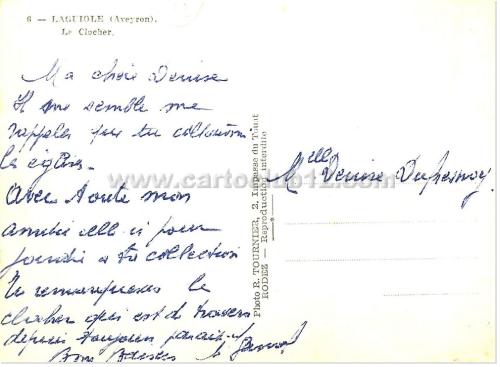 6 — LAGUIOLE (Aveyron).
Le Clocher.
Ma chère Denise
Il me semble me
rappeler que tu collectionnes
les églises.
Avec toute mon
amitié celle-ci pour
joindre à ta collection
Tu remarqueras le
clocher qui est de travers
depuis toujours parait-il
Bons Baisers
Mlle Denise
Photo R. TOURNIER, 2, Impasse du Tibet
RODEZ — Reproduction interdite
www.cartoclub12.com